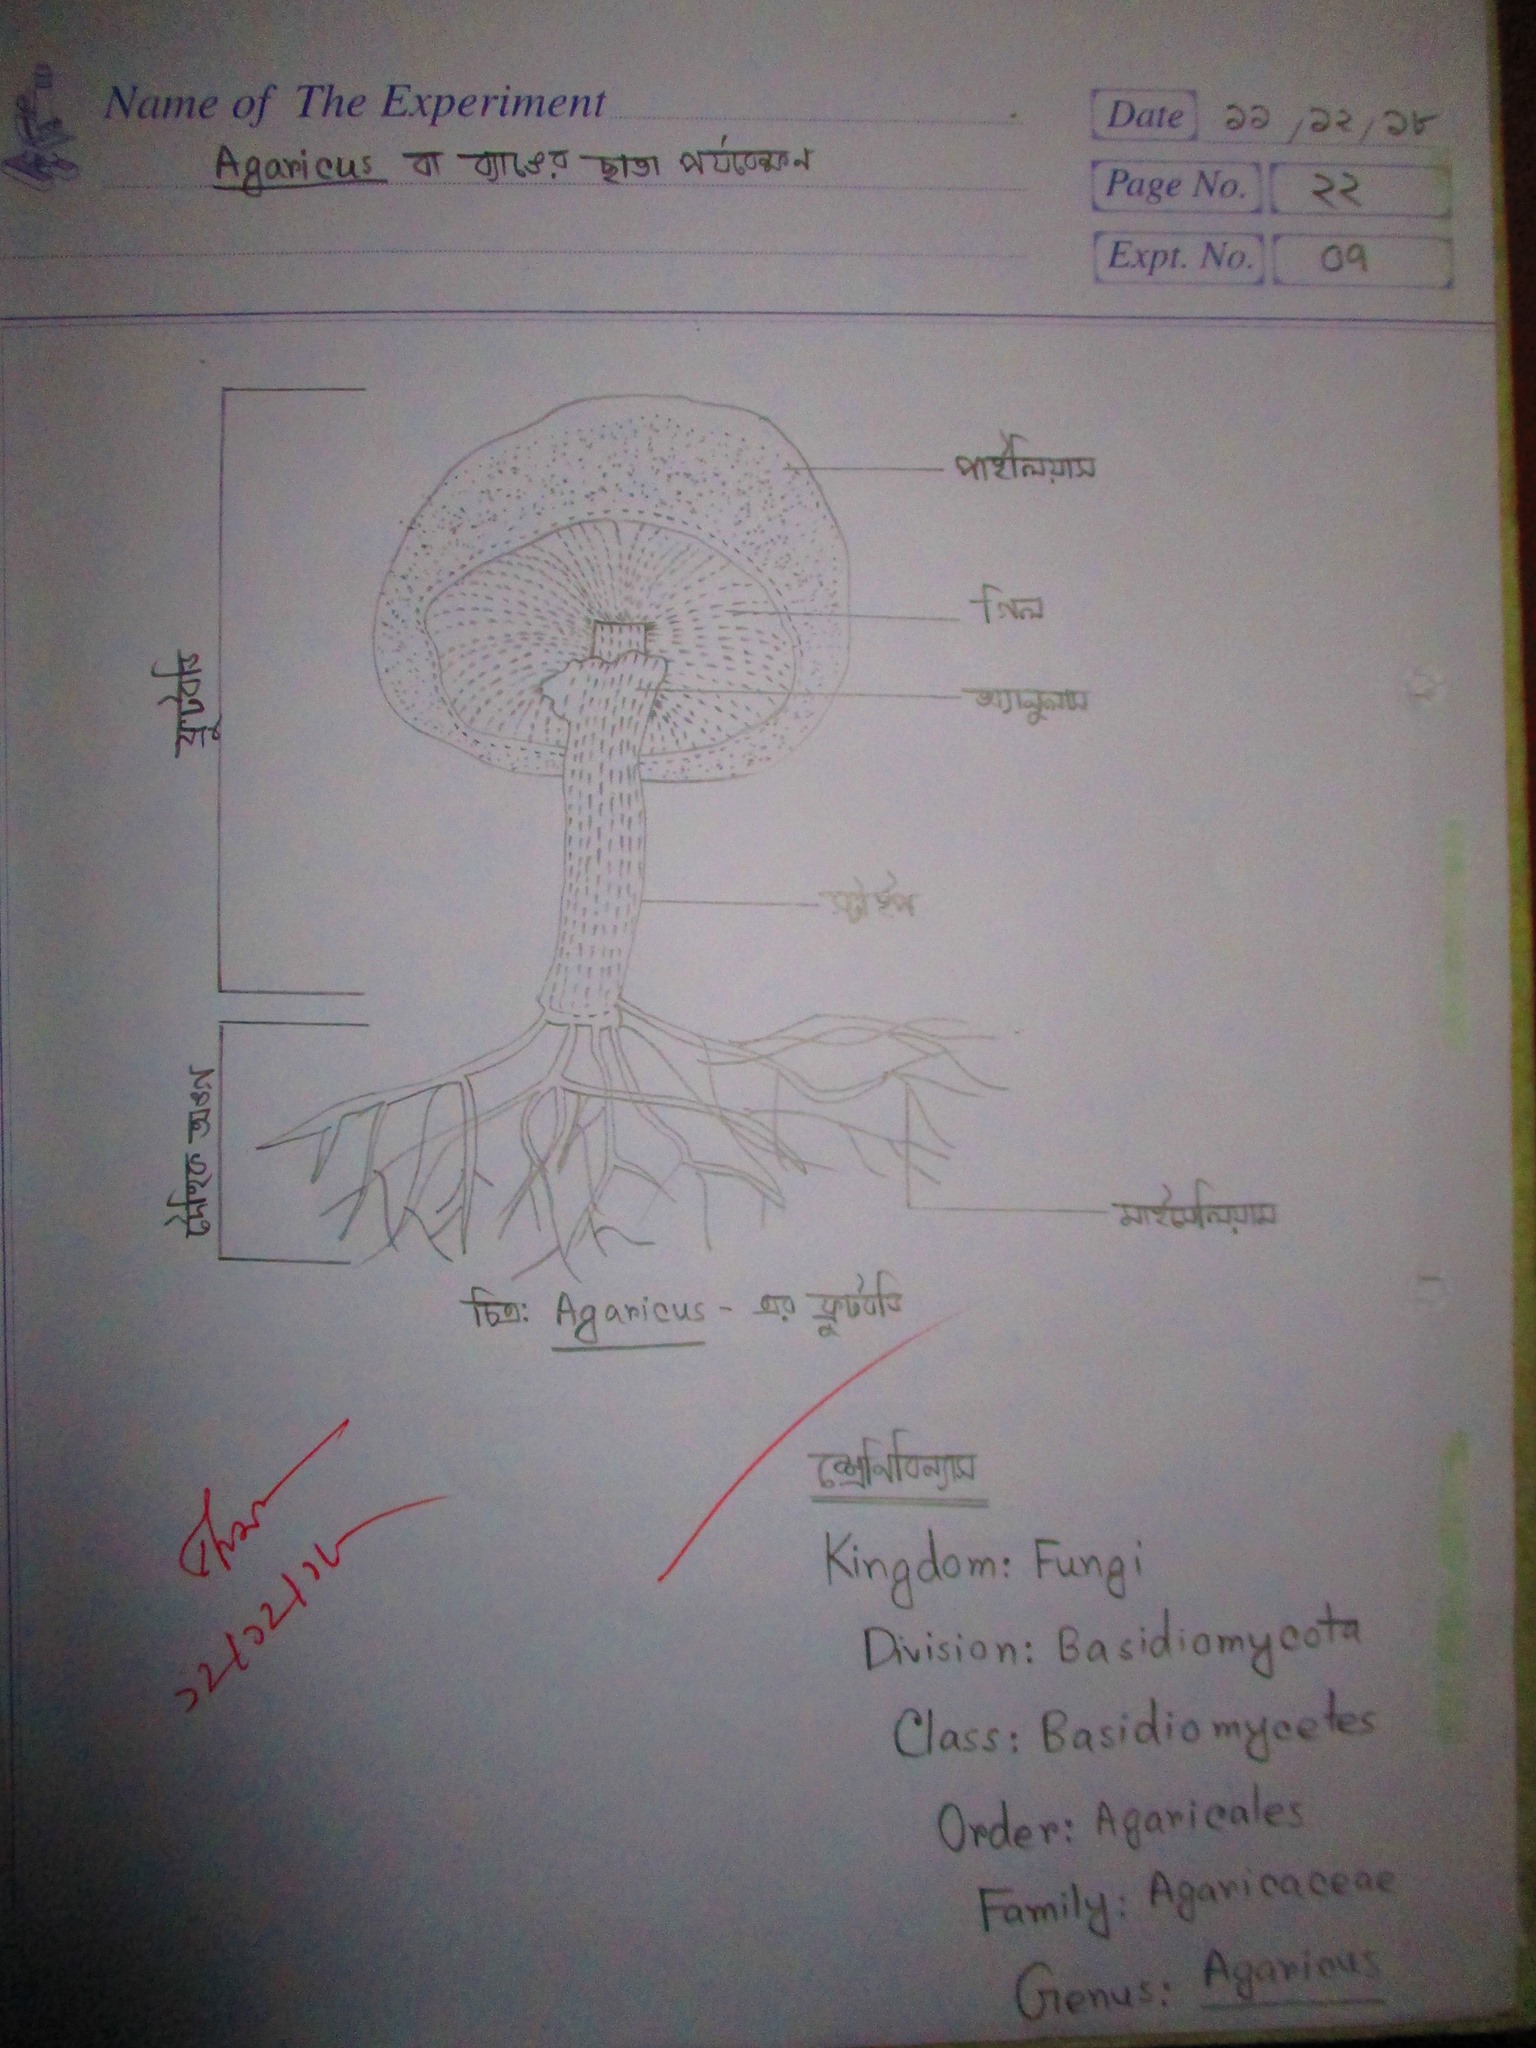 Name of The Experiment
Agaricus বা ব্যাঙের ছাতা পর্যবেক্ষন
Date ১১/১২/১৮
Page No. ২২
Expt. No. ০৭
পাইলিয়াস
গিল
অ্যানুলাস
স্টাইপ
মাইসেলিয়াম
চিত্র: Agaricus - এর ফ্রুটবডি
শ্রেনিবিন্যাস
Kingdom: Fungi
Division: Basidiomycota
Class: Basidiomycetes
Order: Agaricales
Family: Agaricaceae
Genus: Agaricus
১২/১২/১৮